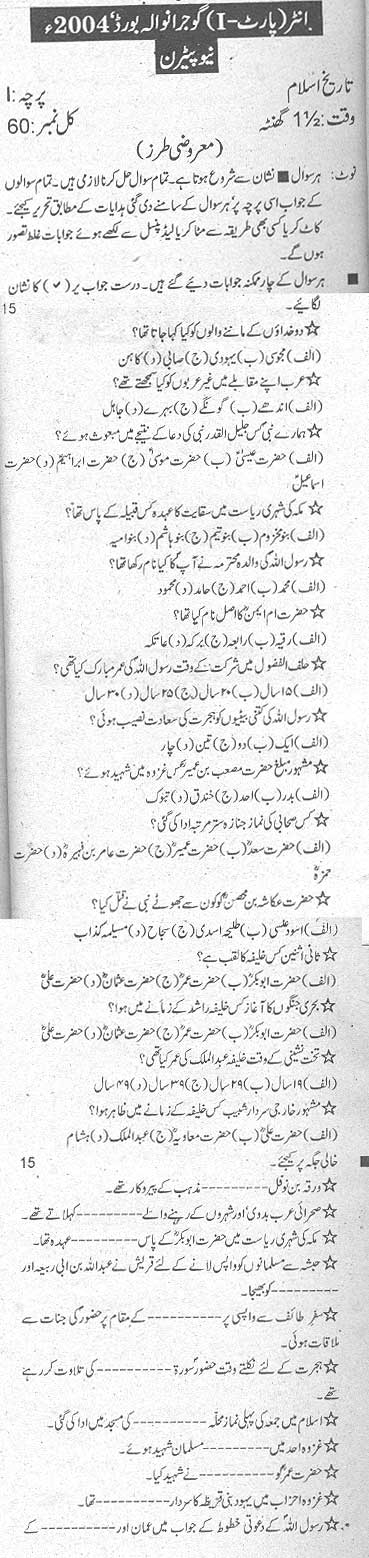 انٹر (پارٹ-I) گوجرانوالہ بورڈ، 2004ء
نیو پیٹرن
تاریخ اسلام پرچہ: I
وقت: 1½ گھنٹہ کل نمبر: 60
(معروضی طرز)
نوٹ: ہر سوال ■ نشان سے شروع ہوتا ہے۔ تمام سوال حل کرنا لازمی ہیں۔ تمام سوالوں
کے جواب اسی پرچہ پر ہر سوال کے سامنے دی گئی ہدایات کے مطابق تحریر کیجئے۔
کاٹ کر یا کسی بھی طریقہ سے مٹا کر یا لیڈ پنسل سے لکھے ہوئے جوابات غلط تصور
ہوں گے۔
■ ہر سوال کے چار ممکنہ جوابات دیئے گئے ہیں۔ درست جواب پر (✓) کا نشان
لگائیے۔ 15
☆ دو خداؤں کے ماننے والوں کو کیا کہا جاتا تھا؟
(الف) مجوسی (ب) یہودی (ج) صابی (د) کاہن
☆ عرب اپنے مقابلے میں غیر عربوں کو کیا سمجھتے تھے؟
(الف) اندھے (ب) گونگے (ج) بہرے (د) جاہل
☆ ہمارے نبی کس جلیل القدر نبی کی دعا کے نتیجے میں مبعوث ہوئے؟
(الف) حضرت عیسیٰؑ (ب) حضرت موسیٰؑ (ج) حضرت ابراہیمؑ (د) حضرت
اسماعیلؑ
☆ مکہ کی شہری ریاست میں سقایت کا عہدہ کس قبیلہ کے پاس تھا؟
(الف) بنو مخزوم (ب) بنو تیم (ج) بنو ہاشم (د) بنو امیہ
☆ رسول اللہؐ کی والدہ محترمہ نے آپؐ کا کیا نام رکھا تھا؟
(الف) محمد (ب) احمد (ج) حامد (د) محمود
☆ حضرت ام ایمنؓ کا اصل نام کیا تھا؟
(الف) رقیہ (ب) رابعہ (ج) برکہ (د) عاتکہ
☆ حلف الفضول میں شرکت کے وقت رسول اللہؐ کی عمر مبارک کیا تھی؟
(الف) ۱۵ سال (ب) ۲۰ سال (ج) ۲۵ سال (د) ۳۰ سال
☆ رسول اللہؐ کی کتنی بیٹیوں کو ہجرت کی سعادت نصیب ہوئی؟
(الف) ایک (ب) دو (ج) تین (د) چار
☆ مشہور مبلغ حضرت مصعب بن عمیرؓ کس غزوہ میں شہید ہوئے؟
(الف) بدر (ب) احد (ج) خندق (د) تبوک
☆ کس صحابی کی نماز جنازہ ستر مرتبہ ادا کی گئی؟
(الف) حضرت سعدؓ (ب) حضرت عمیرؓ (ج) حضرت عامر بن فہیرہؓ (د) حضرت
حمزہؓ
☆ حضرت عکاشہ بن محصنؓ کو کون سے جھوٹے نبی نے قتل کیا؟
(الف) اسود عنسی (ب) طلیحہ اسدی (ج) سجاح (د) مسیلمہ کذاب
☆ ثانی اثنین کس خلیفہ کا لقب ہے؟
(الف) حضرت ابوبکرؓ (ب) حضرت عمرؓ (ج) حضرت عثمانؓ (د) حضرت علیؓ
☆ بحری جنگوں کا آغاز کس خلیفہ راشد کے زمانے میں ہوا؟
(الف) حضرت ابوبکرؓ (ب) حضرت عمرؓ (ج) حضرت عثمانؓ (د) حضرت علیؓ
☆ تخت نشینی کے وقت خلیفہ عبدالملک کی عمر کیا تھی؟
(الف) ۱۹ سال (ب) ۲۹ سال (ج) ۳۹ سال (د) ۴۹ سال
☆ مشہور خارجی سردار شبیب کس خلیفہ کے زمانے میں ظاہر ہوا؟
(الف) حضرت علیؓ (ب) حضرت معاویہؓ (ج) عبدالملک (د) ہشام
■ خالی جگہ پر کیجئے۔ 15
☆ ورقہ بن نوفل ---------- مذہب کے پیروکار تھے۔
☆ صحرائی عرب بدوی اور شہروں کے رہنے والے ---------- کہلاتے تھے۔
☆ مکہ کی شہری ریاست میں حضرت ابوبکرؓ کے پاس ---------- عہدہ تھا۔
☆ حبشہ سے مسلمانوں کو واپس لانے کے لئے قریش نے عبداللہ بن ابی ربیعہ اور
---------- کو بھیجا۔
☆ سفر طائف سے واپسی پر ---------- کے مقام پر حضورؐ کی جنات سے
ملاقات ہوئی۔
☆ ہجرت کے لئے نکلتے وقت حضورؐ سورۃ ---------- کی تلاوت کر رہے
تھے۔
☆ اسلام میں جمعہ کی پہلی نماز محلّہ ---------- کی مسجد میں ادا کی گئی۔
☆ غزوہ احد میں ---------- مسلمان شہید ہوئے۔
☆ حضرت عمرؓ کو ---------- نے شہید کیا۔
☆ غزوہ احزاب میں یہود بنی قریظہ کا سردار ---------- تھا۔
☆ رسول اللہؐ کے دعوتی خطوط کے جواب میں عمان اور ---------- کے